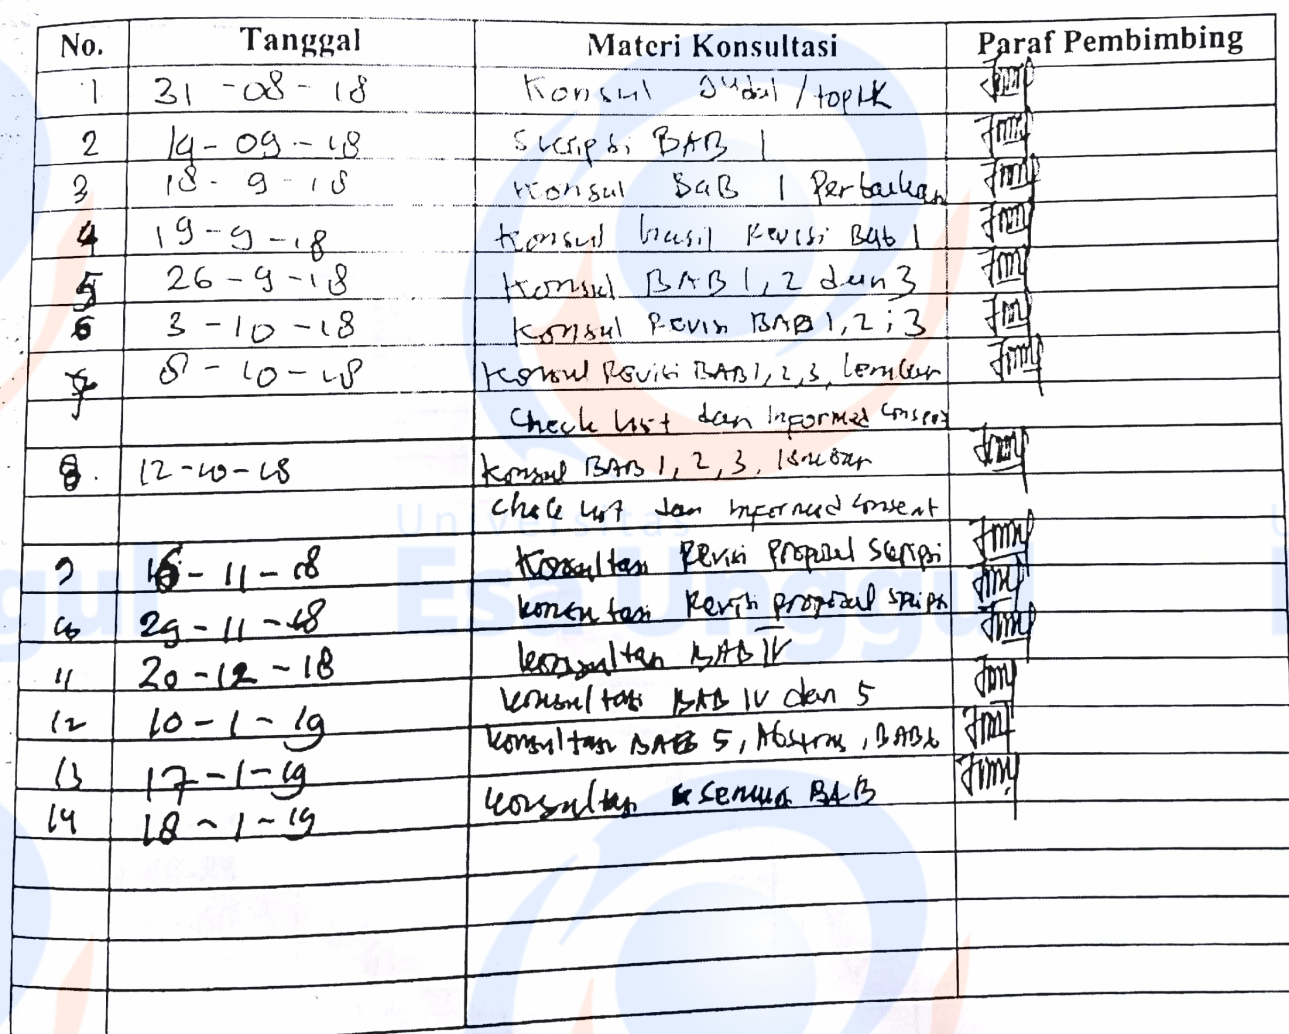 No. Tanggal Materi Konsultasi Paraf Pembimbing
1 31-08-18 Konsul Judul/topik
2 14-09-18 Skripsi BAB 1
3 18-9-18 Konsul BaB 1 Perbaikan
4 19-9-18 Konsul hasil Revisi Bab 1
5 26-9-18 Konsul BAB 1, 2 dan 3
6 3-10-18 Konsul Revisi BAB 1, 2 ; 3
7 8-10-18 Konsul Revisi BAB 1, 2, 3, lembar
Check list dan Informed Consent
8. 12-10-18 Konsul BAB 1, 2, 3, lembar
check list dan Informed Consent
Universitas
9 16-11-18 Konsultasi Revisi Proposal Skripsi
Esa Unggul
10 29-11-18 konsultasi Revisi proposal skripsi
11 20-12-18 konsultasi BAB IV
12 10-1-19 konsultasi BAB IV dan 5
13 17-1-19 konsultasi BAB 5, Abstrak, BAB 6
14 18-1-19 konsultasi semua BAB